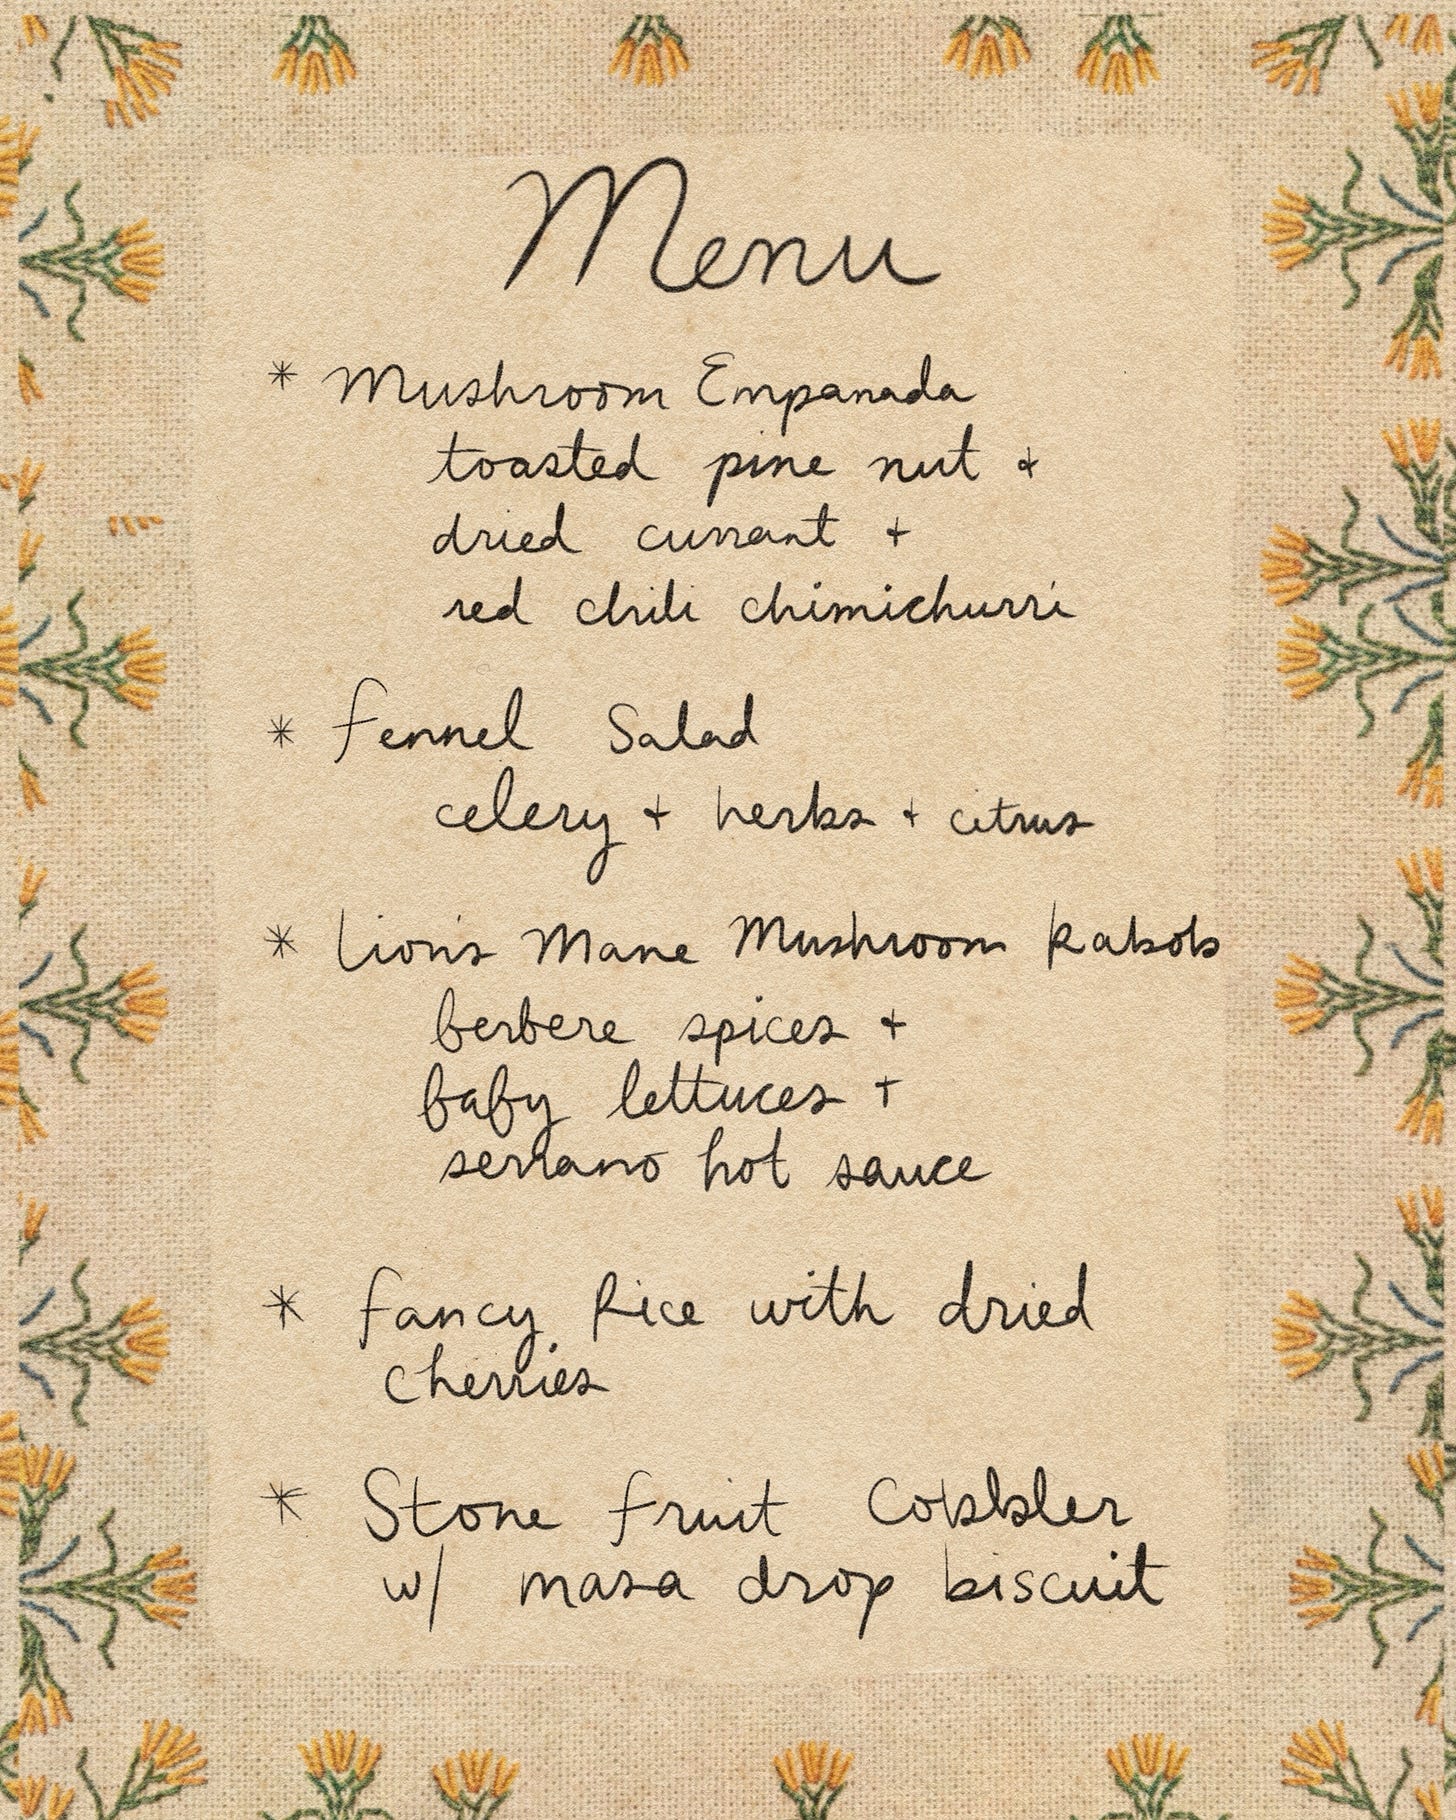 Menu
* Mushroom Empanada
toasted pine nut +
dried currant +
red chili chimichurri
* Fennel Salad
celery + herbs + citrus
* Lion's Mane Mushroom Kabob
berbere spices +
baby lettuces +
serrano hot sauce
* Fancy Rice with dried
cherries
* Stone Fruit Cobbler
w/ masa drop biscuit